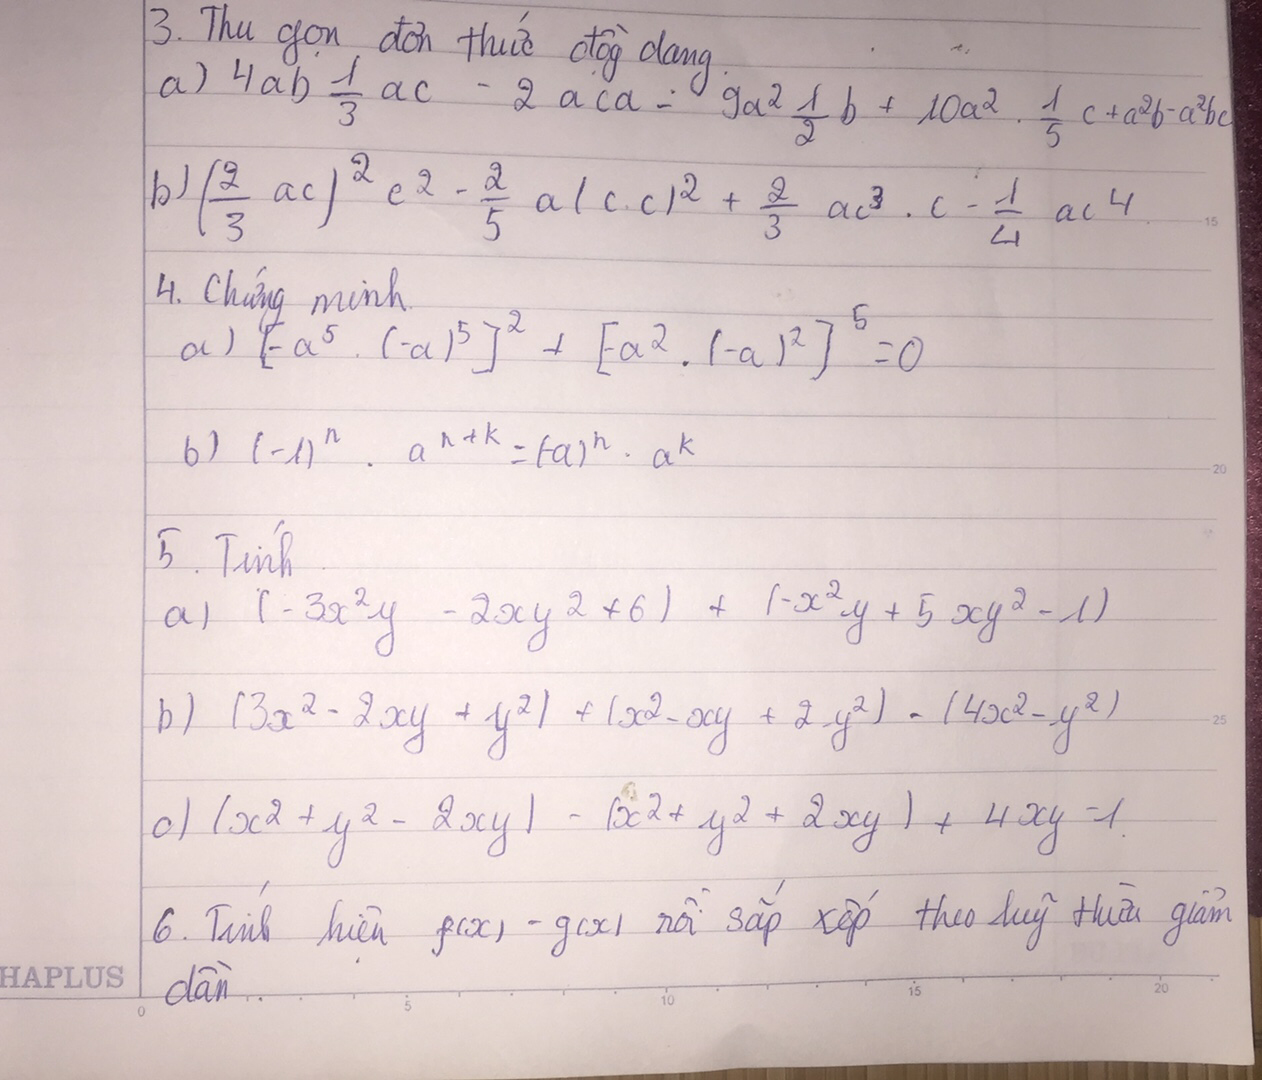 3. Thu gọn đơn thức đồg dạng
a) 4ab 1/3 ac - 2 aca - 9a² 1/2 b + 10a² . 1/5 c + a²b - a²bc
b) (2/3 ac)² c² - 2/5 a(c.c)² + 2/3 ac³ . c - 1/4 ac⁴
4. Chứng minh
a) [-a⁵ . (-a)⁵]² + [-a² . (-a)²]⁵ = 0
b) (-1)ⁿ . aⁿ⁺ᵏ = (-a)ⁿ . aᵏ
5. Tính
a) (-3x²y - 2xy² + 6) + (-x²y + 5xy² - 1)
b) (3x² - 2xy + y²) + (x² - xy + 2y²) - (4x² - y²)
c) (x² + y² - 2xy) - (x² + y² + 2xy) + 4xy - 1.
6. Tính hiệu f(x) - g(x) rồi sắp xếp theo luỹ thừa giảm
dần
HAPLUS
15
20
25
0 5 10 15 20